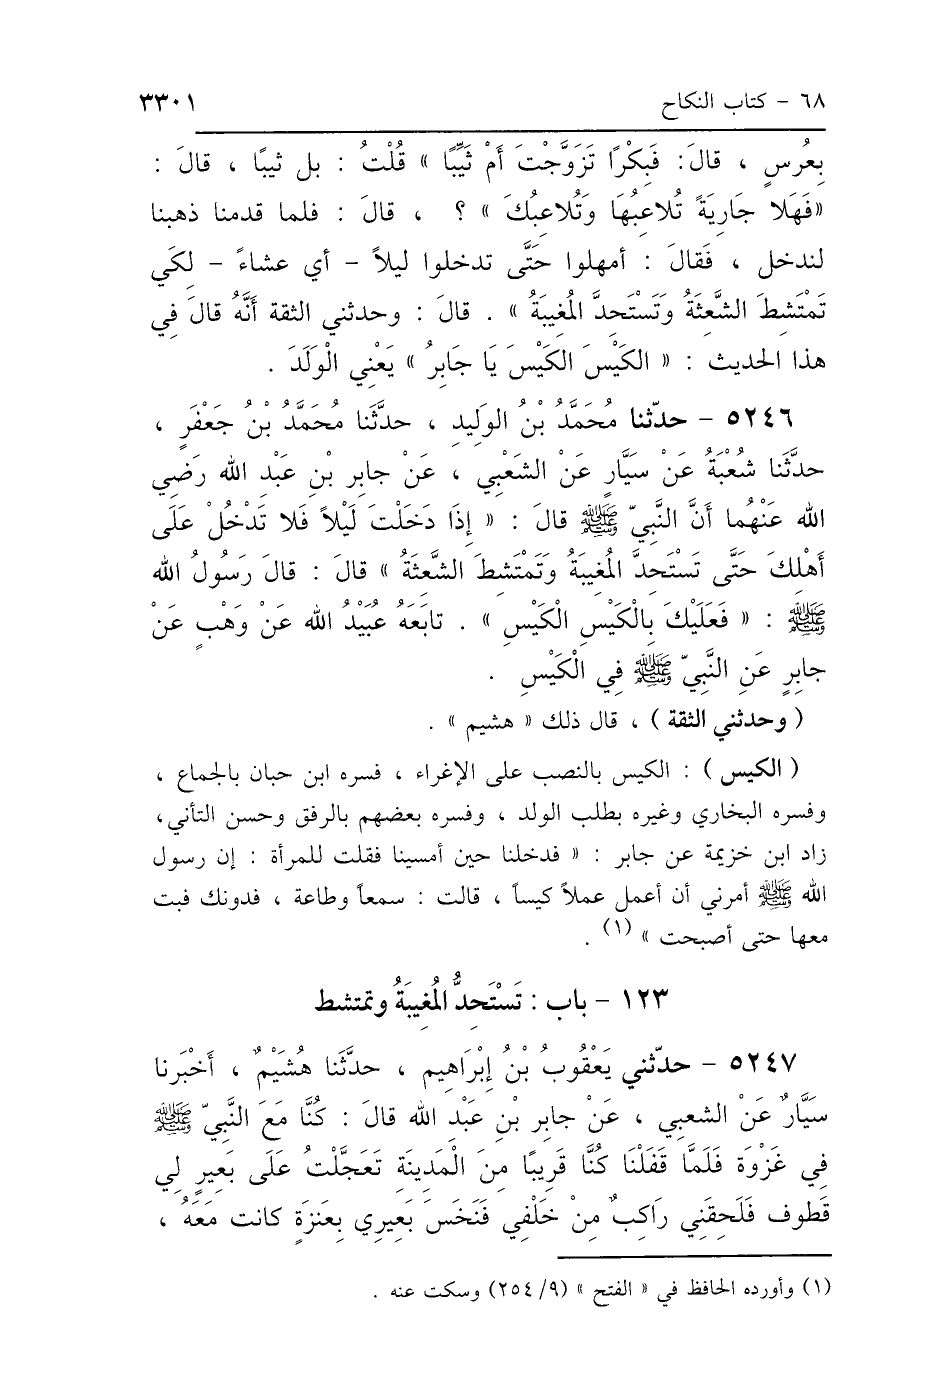 ٦٨ - كتاب النكاح ٣٣٠١
بِعُرسٍ ، قالَ: فَبِكْرًا تَزَوَّجْتَ أَمْ ثَيِّبًا » قُلْتُ : بل ثيبًا ، قالَ :
«فَهَلا جَارِيَةً تُلاعِبُهَا وَتُلاعِبُكَ » ؟ ، قالَ : فلما قدمنا ذهبنا
لندخل ، فَقالَ : أمهلوا حَتَّى تدخلوا ليلاً - أي عشاءً - لكَي
تَمْتَشِطَ الشَّعثَةُ وَتَسْتَحِدَّ المُغِيبَةُ » . قالَ : وحدثني الثقة أَنَّهُ قالَ فِي
هذا الحديث : « الكَيْسَ الكَيْسَ يَا جَابِرُ » يَعْنِي الْوَلَدَ .
٥٢٤٦ - حدّثنا مُحَمَّدُ بْنُ الوَلِيدِ ، حدَّثَنا مُحَمَّدُ بْنُ جَعْفَرٍ ،
حدَّثَنا شُعْبَةُ عَنْ سَيَّارٍ عَنْ الشَعْبِي ، عَنْ جابِرِ بْنِ عَبْدِ الله رَضِي
الله عَنْهُما أَنَّ النَّبِيّ ﷺ قالَ : « إِذَا دَخَلْتَ لَيْلاً فَلا تَدْخُلْ عَلَى
أَهْلِكَ حَتَّى تَسْتَحِدَّ المُغِيبَةُ وَتَمْتَشِطَ الشَّعثَةُ » قالَ : قالَ رَسُولُ الله
ﷺ : « فَعَلَيْكَ بِالْكَيْسِ الكَيْسِ » . تابَعَهُ عُبَيْدُ الله عَنْ وَهْبٍ عَنْ
جابِرٍ عَنِ النَّبِيّ ﷺ فِي الْكَيْسِ .
( وحدثني الثقة ) ، قال ذلك « هشيم » .
( الكيس ) : الكيس بالنصب على الإغراء ، فسره ابن حبان بالجماع ،
وفسره البخاري وغيره بطلب الولد ، وفسره بعضهم بالرفق وحسن التأني،
زاد ابن خزيمة عن جابر : « فدخلنا حين أمسينا فقلت للمرأة : إن رسول
الله ﷺ أمرني أن أعمل عملاً كيساً ، قالت : سمعاً وطاعة ، فدونك فبت
معها حتى أصبحت » (١) .
١٢٣ - باب : تَسْتَحِدُّ المُغِيبَةُ وتمتشط
٥٢٤٧ - حدّثني يَعْقُوبُ بْنُ إِبْرَاهِيم ، حدَّثَنا هُشَيْمٌ ، أَخْبَرنا
سَيَّارٌ عَنْ الشعبي ، عَنْ جابِرِ بْنِ عَبْدِ الله قالَ : كُنَّا مَعَ النَّبِيّ ﷺ
فِي غَزْوَة فَلَمَّا قَفَلْنَا كُنَّا قَرِيبًا مِنَ الْمَدِينَةِ تَعَجَّلْتُ عَلَى بَعِيرٍ لِي
قَطوف فَلَحِقَنِي رَاكِبٌ مِنْ خَلْفِي فَنَخَسَ بَعِيرِي بِعَنَزَةٍ كانت مَعَهُ ،
(١) وأورده الحافظ في « الفتح » (٩/ ٢٥٤) وسكت عنه .